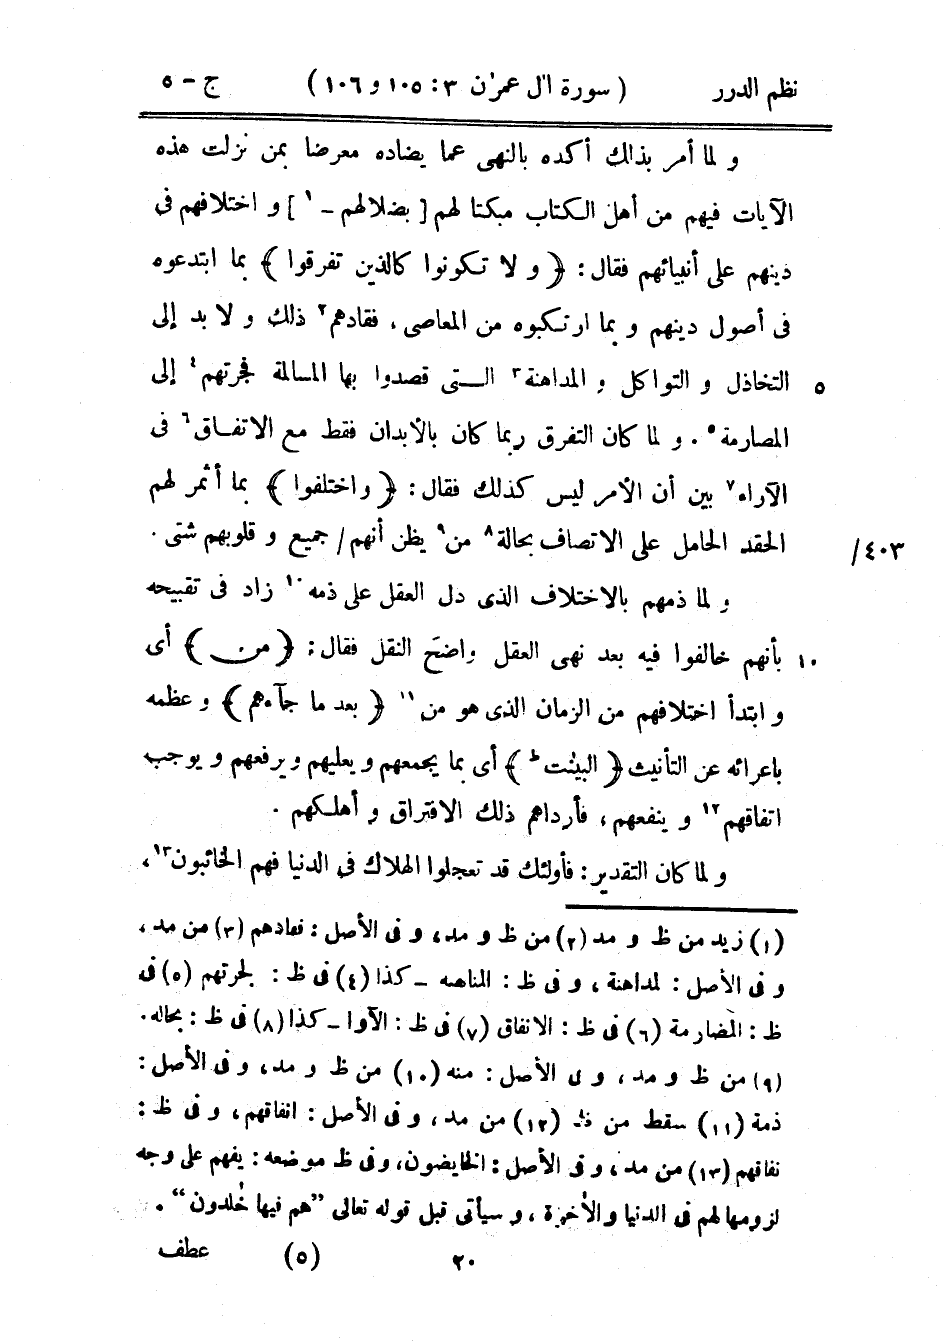 نظم الدرر ( سورة اٰل عمرٰن ٣ : ١٠٥ و ١٠٦ ) ج - ٥
و لما أمر بذلك أكده بالنهى عما يضاده معرضا بمن نزلت هذه
الآيات فيهم من أهل الكتاب مبكتا لهم [ بضلالهم - ١ ] و اختلافهم فى
دينهم على أنبيائهم فقال : ﴿ و لا تكونوا كالذين تفرقوا ﴾ بما ابتدعوه
فى أصول دينهم و بما ارتكبوه من المعاصى ، فقادهم٢ ذلك و لا بد إلى
التخاذل و التواكل و المداهنة٣ التى قصدوا بها المسالمة فجرتهم٤ إلى ٥
المصارمة٥ . و لما كان التفرق ربما كان بالأبدان فقط مع الاتفاق٦ فى
الآراء٧ بين أن الأمر ليس كذلك فقال : ﴿ و اختلفوا ﴾ بما أثمر لهم
الحقد الحامل على الاتصاف بحالة٨ من٩ يظن أنهم / جميع و قلوبهم شتى . /٤٠٣
و لما ذمهم بالاختلاف الذى دل العقل على ذمه١٠ زاد فى تقبيحه
بأنهم خالفوا فيه بعد نهى العقل واضحَ النقل فقال : ﴿ من ﴾ أى ١٠
و ابتدأ اختلافهم من الزمان الذى هو من١١ ﴿ بعد ما جآءهم ﴾ و عظمه
باعرائه عن التأنيث ﴿ البيّنٰت ط ﴾ أى بما يجمعهم و يعليهم و يرفعهم و يوجب
اتفاقهم١٢ و ينفعهم ، فأرداهم ذلك الافتراق و أهلكهم .
و لما كان التقدير : فأولئك قد تعجلوا الهلاك فى الدنيا فهم الخائبون١٣ ،
(١) زيد من ظ و مد (٢) من ظ و مد ، و فى الأصل : فعادهم (٣) من مد ،
و فى الأصل : لمداهنة ، و فى ظ : المناهه - كذا (٤) فى ظ : لجرتهم (٥) فى
ظ : المضارمة (٦) فى ظ : الانفاق (٧) فى ظ : الآوا - كذا (٨) فى ظ : بحاله .
(٩) من ظ و مد ، و فى الأصل : منه (١٠) من ظ و مد ، و فى الأصل :
ذمة (١١) سقط من ظ (١٢) من مد ، و فى الأصل : انفاقهم ، و فى ظ :
نفاقهم (١٣) من مد ، و فى الأصل : الخايضون ، و فى ظ موضعه : يفهم على وجه
لزومها لهم فى الدنيا و الأخرة ، و سيأتى قبل قوله تعالى "هم فيها خٰلدون" .
٢٠ (٥) عطف